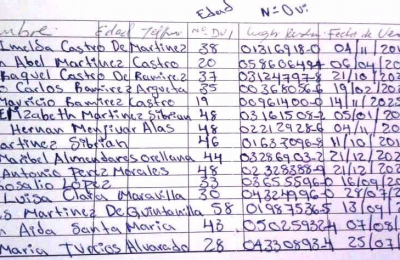 Edad Nº Dui
mbre. Edad Telfno Nº DUI Lugar Resid. Fecha de Ven
Imelda Castro De Martinez 38 01316918-0 04/11/201
n Abel Martinez Castro 20 05860649-4 06/04/20
Raquel Castro De Ramirez 37 03124797-8 21/10/20
o Carlos Ramirez Argueta 35 00368056-6 19/02/20
Mauricio Ramirez Castro 19 00961400-0 14/11/202
Elizabeth Martinez Sibrian 48 03161508-2 05/01/20
Hernan Menjivar Alas 48 02212928-6 04/11/
artinez Sibrian 46 01637096-8 11/10/201
Maribel Almendares Orellana 44 03286903-2 21/12/202
Antonio Perez Morales 48 02328388-9 21/12/202
Rosalio Lopez 33 03655596-0 16/09/20
Luisa Clara Maravilla 30 04324996-0 21/07/
s Martinez De Quintanilla 58 01987536-5 13/09/
n Aida Santa Maria 43 05025932-4 07/08/
Maria Turcios Alvarado 28 04330893-4 25/07/